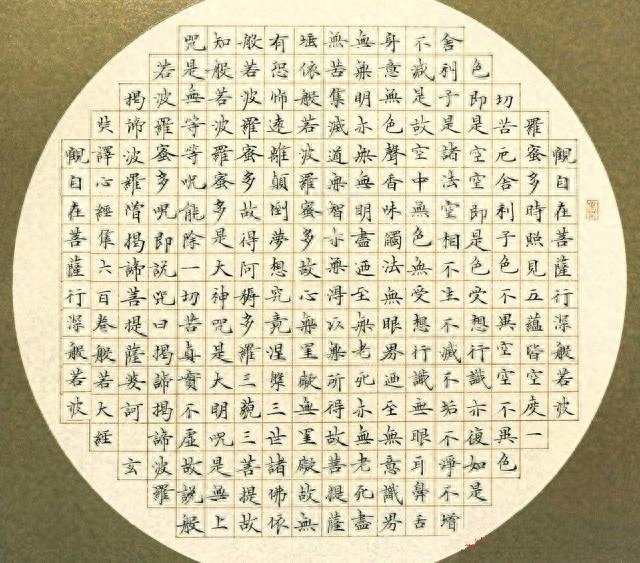 觀自在菩薩行深般若波
羅蜜多時照見五蘊皆空度一
切苦厄舍利子色不異空空不異色
色即是空空即是色受想行識亦復如是
舍利子是諸法空相不生不滅不垢不淨不增
不減是故空中無色無受想行識無眼耳鼻舌
身意無色聲香味觸法無眼界廼至無意識界
無無明亦無無明盡廼至無老死亦無老死盡
無苦集滅道無智亦無得以無所得故菩提薩
埵依般若波羅蜜多故心無罣礙無罣礙故無
有恐怖遠離顛倒夢想究竟涅槃三世諸佛依
般若波羅蜜多故得阿耨多羅三藐三菩提故
知般若波羅蜜多是大神咒是大明咒是無上
咒是無等等咒能除一切苦真實不虛故說般
若波羅蜜多咒即說咒曰揭諦揭諦波羅
揭諦波羅僧揭諦菩提薩婆訶 玄
奘譯心經集六百卷般若大經
觀自在菩薩行深般若波